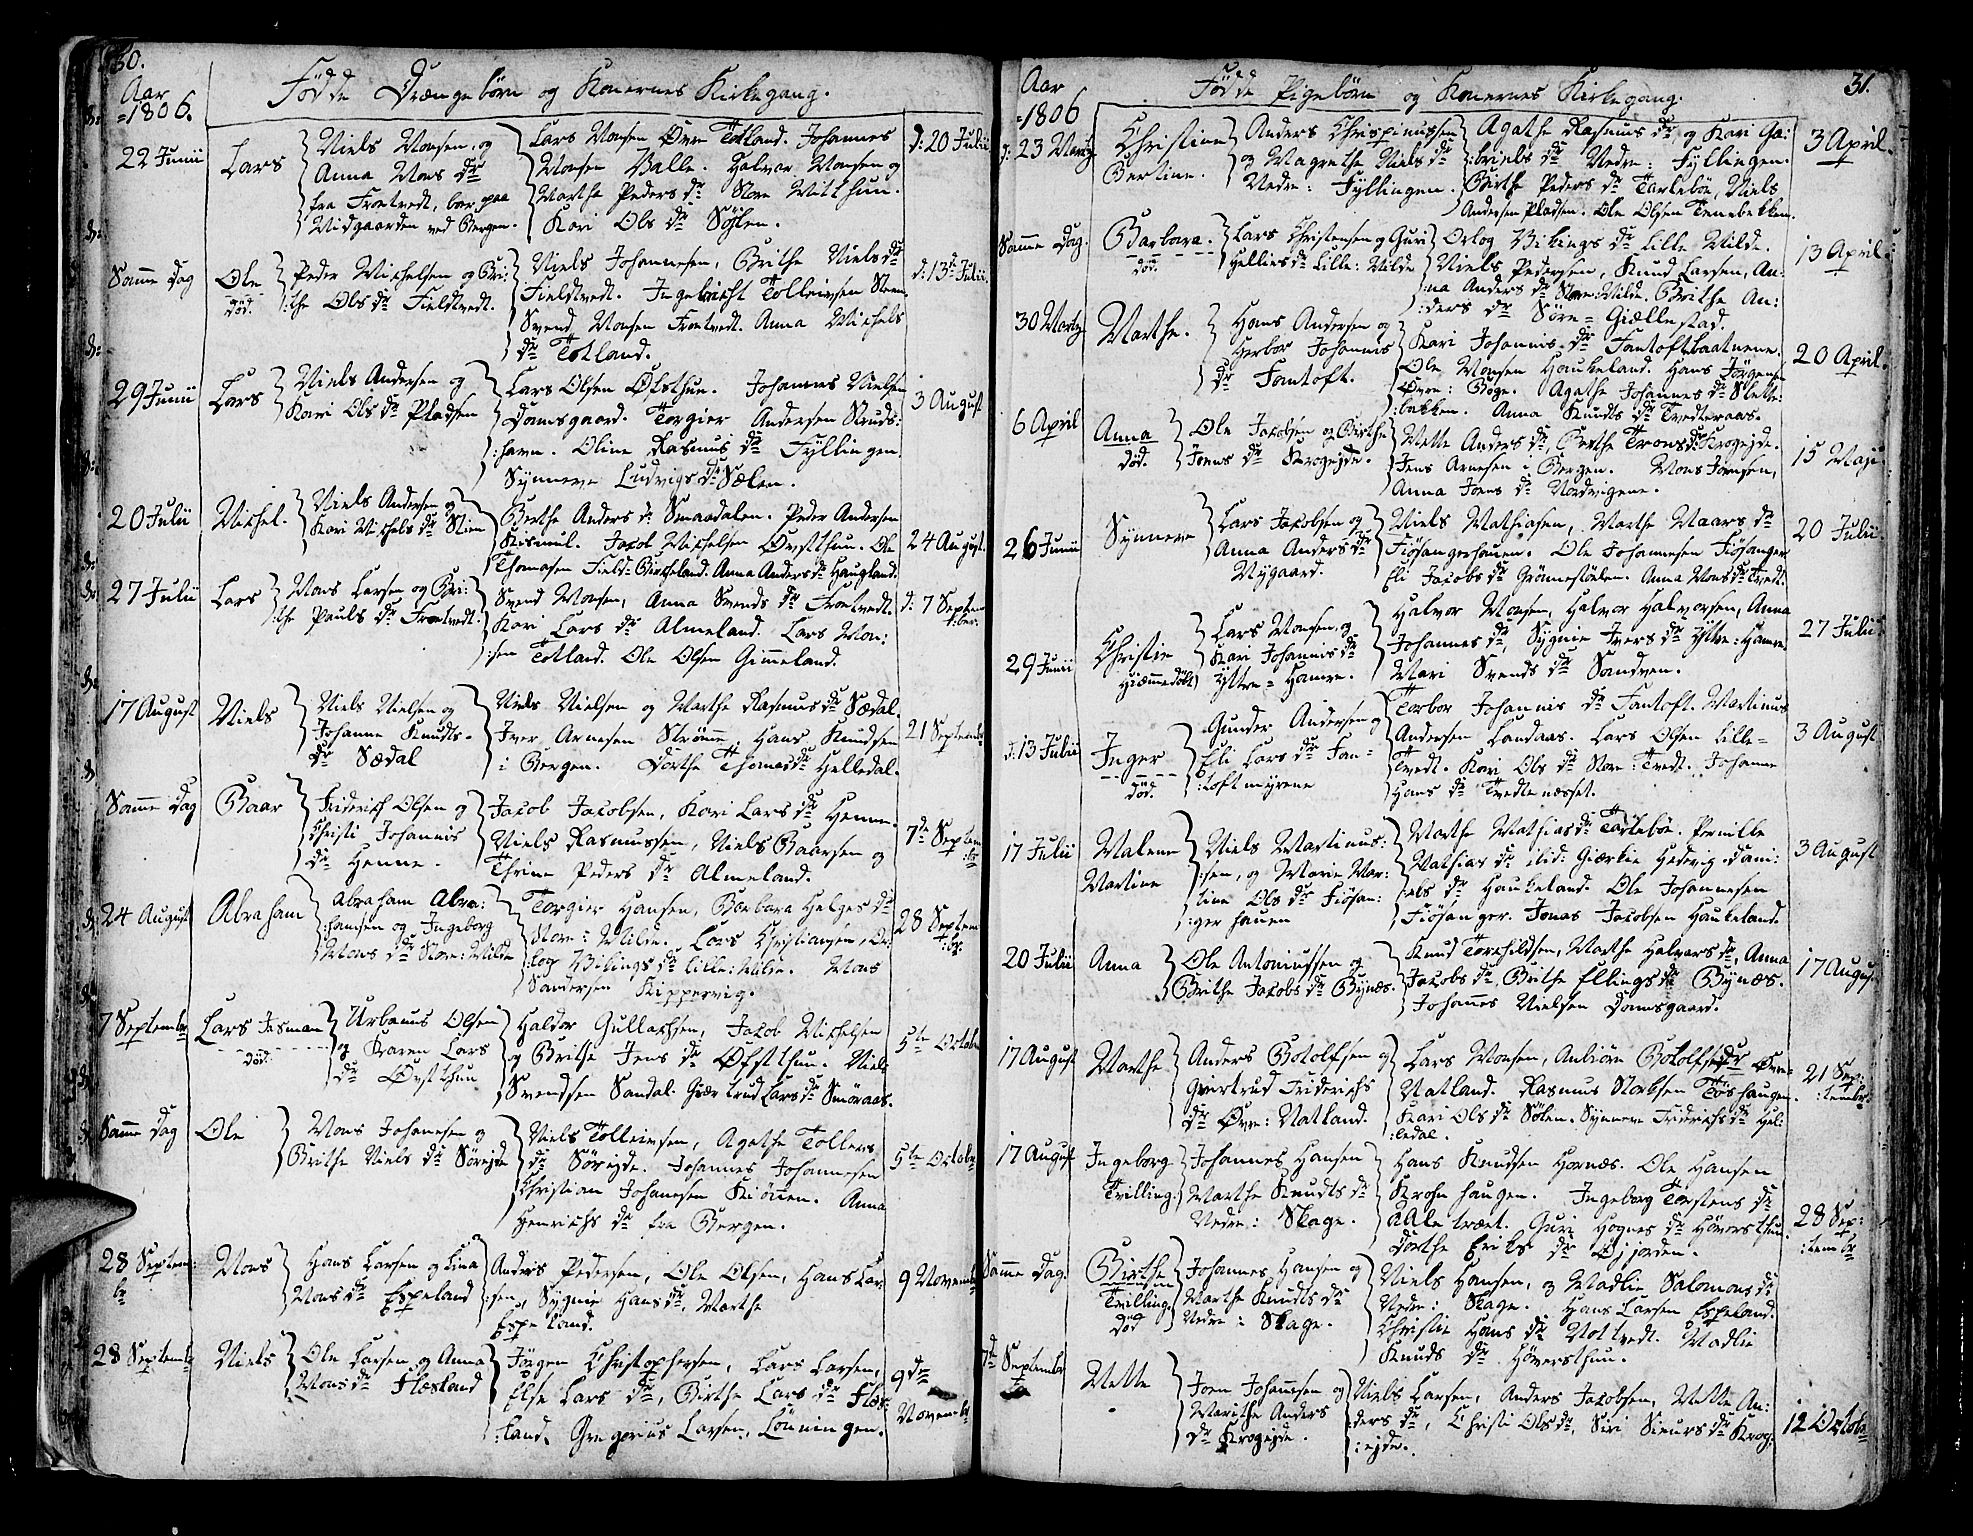 30.
Aar
1806.
Födde Drængebörn og Konernes Kirkegang.
22 Junii
Lars
Niels Monsen, og
Anna Mons dr
fra Frotvedt, bor paa
Midgaarden ved Bergen.
Lars Monsen Øvre Totland. Johannes
Monsen Valle. Halvor Monsen og
Marthe Peders dr Store Milthun.
Kari Ols dr Sælen.
d: 20 Julii
Samme Dag
Ole
död.
Peder Michelsen og Bri:
:the Ols dr Fieldtvedt.
Niels Johannesen, Brithe Niels dr
Fieldtvedt. Ingebricht Tolleivsen Steen,
Svend Monsen Frotvedt. Anna Michels
dr Totland.
d: 13de Julii.
29 Junii
Lars
Niels Andersen og
Kari Ols dr Pladsen
Lars Olsen Øfsthun. Johannes Nielsen
Damsgaard. Torgier Andersen Struds:
:havn. Oline Rasmus dr Fyllingen.
Synneve Ludvigs dr Sælen.
3 August
20 Julii
Michel.
Niels Andersen og
Kari Michels dr Stien
Berthe Anders dr Smaadalen. Peder Andersen
Kismul. Jacob Michelsen Øvstthun. Ole
Thomasen Field-Birkeland. Anna Anders dr Haugland.
24 August.
27 Julii
Lars
Mons Larsen og Bri:
:the Pauls dr Frotvedt.
Svend Monsen, Anna Svends dr Frotvedt.
Kari Lars dr Almeland. Lars Mon:
:sen Totland. Ole Olsen Gimmeland.
d: 7 Septem
:ber.
17 August
Niels
Niels Nielsen og
Johanne Knudts-
dr Sædal
Niels Nielsen og Marthe Rasmus dr Sædal.
Iver Arnesen Strömme. Hans Knudsen
i Bergen. Dorthe Thomas dr Helledal.
21 Septembr
Samme Dag
Baar
Friderich Olsen og
Christi Johannis
dr Henne.
Jacob Jacobsen, Kari Lars dr Henne.
Niels Rasmussen, Niels Baarsen og
Thrine Peders dr Almeland.
7de Septem
:br
24 August
Abraham
Abraham Abra:
:hamsen og Ingeborg
Mons dr Store: Milde
Torgier Hansen, Barbara Helges dr
Store: Milde. Lars Christiansen, Or:
:log Vikings dr lille: Milde. Mons
Sandersen Kippervig.
28 Septem
:br.
7 Septembr
Lars Jesman
död.
Urbanus Olsen
og Karen Lars
dr Øvstthun
Haldor Gullachsen, Jacob Michelsen
og Brithe Jens dr Øfstthun. Niels
Svendsen Sandal. Giærtrud Lars dr Smöraas.
5te Octobr
Samme Dag
Ole
Mons Johannesen og
Brithe Niels dr Söreyde
Niels Tolleivsen, Agathe Tollevs
dr Söreyde. Johannes Johannesen
Christian Johannesen Kiönnen. Anna
Henrichs dr fra Bergen.
5te Octobr
28 Septem:
br
Mons
Hans Larsen og Lina
Mons dr Espeland
Anders Pedersen, Ole Olsen, Hans Lar
:sen, Sygnie Hans dr, Marthe
Espeland.
9 Novembr
28 Septembr
Niels
Ole Larsen og Anna
Mons dr Flesland
Jörgen Christophersen, Lars Larsen,
Else Lars dr, Birthe Lars dr Fles:
:land, Gregorius Larsen, Lönningen.
9de
Novembr
31.
Aar
1806
Födde Pigebörn og Konernes Kirkegang.
d: 23 Martz
Christine
Bertine.
Anders Chrispinussen
og Magrethe Niels dr
Nedre: Fyllingen.
Agathe Rasmus dr, og Kari Ga:
:briels dr Nedre: Fyllingen.
Birthe Peders dr Tarlebö, Niels
Andersen Pladsen. Ole Olsen Tenebekken.
3 April.
Samme Dag.
Barbara.
död.
Lars Christensen og Guri
Hellies dr Lille: Milde
Orlog Vikings dr lille Milde.
Niels Pedersen, Knud Larsen, An:
:na Anders dr Store: Milde. Brithe An:
:ders dr Söre-Giællestad.
13 April.
30 Martz
Marthe.
Hans Andersen og
Herbor Johannis
dr Fantoft.
Kari Johannis dr Fantoftbaatnene.
Ole Monsen Haukeland. Hans Jörgensen
Øvre: Böge. Agathe Johannes dr Slette:
:bakken. Anna Knudts dr Tvedteraas.
20 April.
6 April
Anna
död.
Ole Jacobsen og Birthe
Joens dr Krogeyde.
Mette Anders dr, Berthe Trons dr Krogeyde.
Jens Arnesen i Bergen. Mons Joensen,
Anna Joens dr Nordvigene.
15 Maji
26 Junii
Synneve
Lars Jacobsen og
Anna Anders dr
Nygaard.
Niels Mathiasen, Marthe Maars dr
Fiösangerhauen. Ole Johannesen Fiösanger
Eli Jacobs dr Grönnestölen. Anna Mons dr Tvedt.
20 Julii.
29 Junii
Christie
hiemmedöbt
Lars Monsen, og
Kari Johannis dr
Yttre-Hamre.
Halvor Monsen, Halvor Halvorsen, Anna
Johannes dr, Sygnie Ivers dr Yttre: Hamre.
Mari Svends dr Sandven.
27 Julii
d: 13 Julii
Inger
död.
Gunder Andersen og
Eli Lars dr Fan-
:toftmyrene
Torbor Johannis dr Fantoft. Martinus
Andersen Landaas. Lars Olsen lille-
Tvedt. Kari Ols dr Store: Tvedt. Johanne
Hans dr Tvedtenæsset.
3 August
17 Julii
Malene
Martine
Niels Martinus:
:sen, og Marie Mar:
:tine Ols dr Fiösan:
:gerhauen
Marthe Mathias dr Tarlebö. Pernille
Mathias dr ilid: Giærkie Hedevig Dani:
:els dr Haukeland. Ole Johannesen
Fiösanger. Jonas Jacobsen Haukeland.
3 August
20 Julii
Anna
Ole Antoniussen og
Brithe Jacobs dr Bynæs.
Knud Torchildsen, Marthe Halvors dr, Anna
Jacobs dr, Brithe Ellings dr Bynæs.
Johannes Nielsen Damsgaard.
17 August
17 August
Marthe
Anders Botolfsen og
Giertrud Friderichs
dr Øvre: Natland.
Lars Monsen, Anbiör Botolfs dr Øvre-
Natland. Rasmus Nielsen Töshaugen.
Kari Ols dr Sölen. Synneve Friderichs dr Hel:
:ledal.
21 Sep:
:tembr
17 August
Ingeborg
Tvilling.
Johannes Hansen
Marthe Knudts dr
Nedre: Skage.
Hans Knudsen Hornæs. Ole Hansen
Krohnhaugen. Ingeborg Torstens dr
Alletræet. Guri Hognes dr Höversthun.
Dorthe Eriks dr Øjjorden.
28 Sep:
:tembr
Samme Dag.
Birthe
Tvilling.
död
Johannes Hansen og
Marthe Knudts dr
Nedre: Skage.
Niels Hansen, og Madlie Salomons dr
Nedre: Skage. Hans Larsen Espeland.
Christie Hans dr Nottvedt. Madlie
Knuds dr Höversthun.
7de Septembr
Mette
Joen Johannesen og
Marithe Anders
dr Krogeyde.
Niels Larsen, Anders Jacobsen, Mette An:
:ders dr, Christi Ols dr, Siri Siurs dr Krog:
:eyde.
12 Octobr